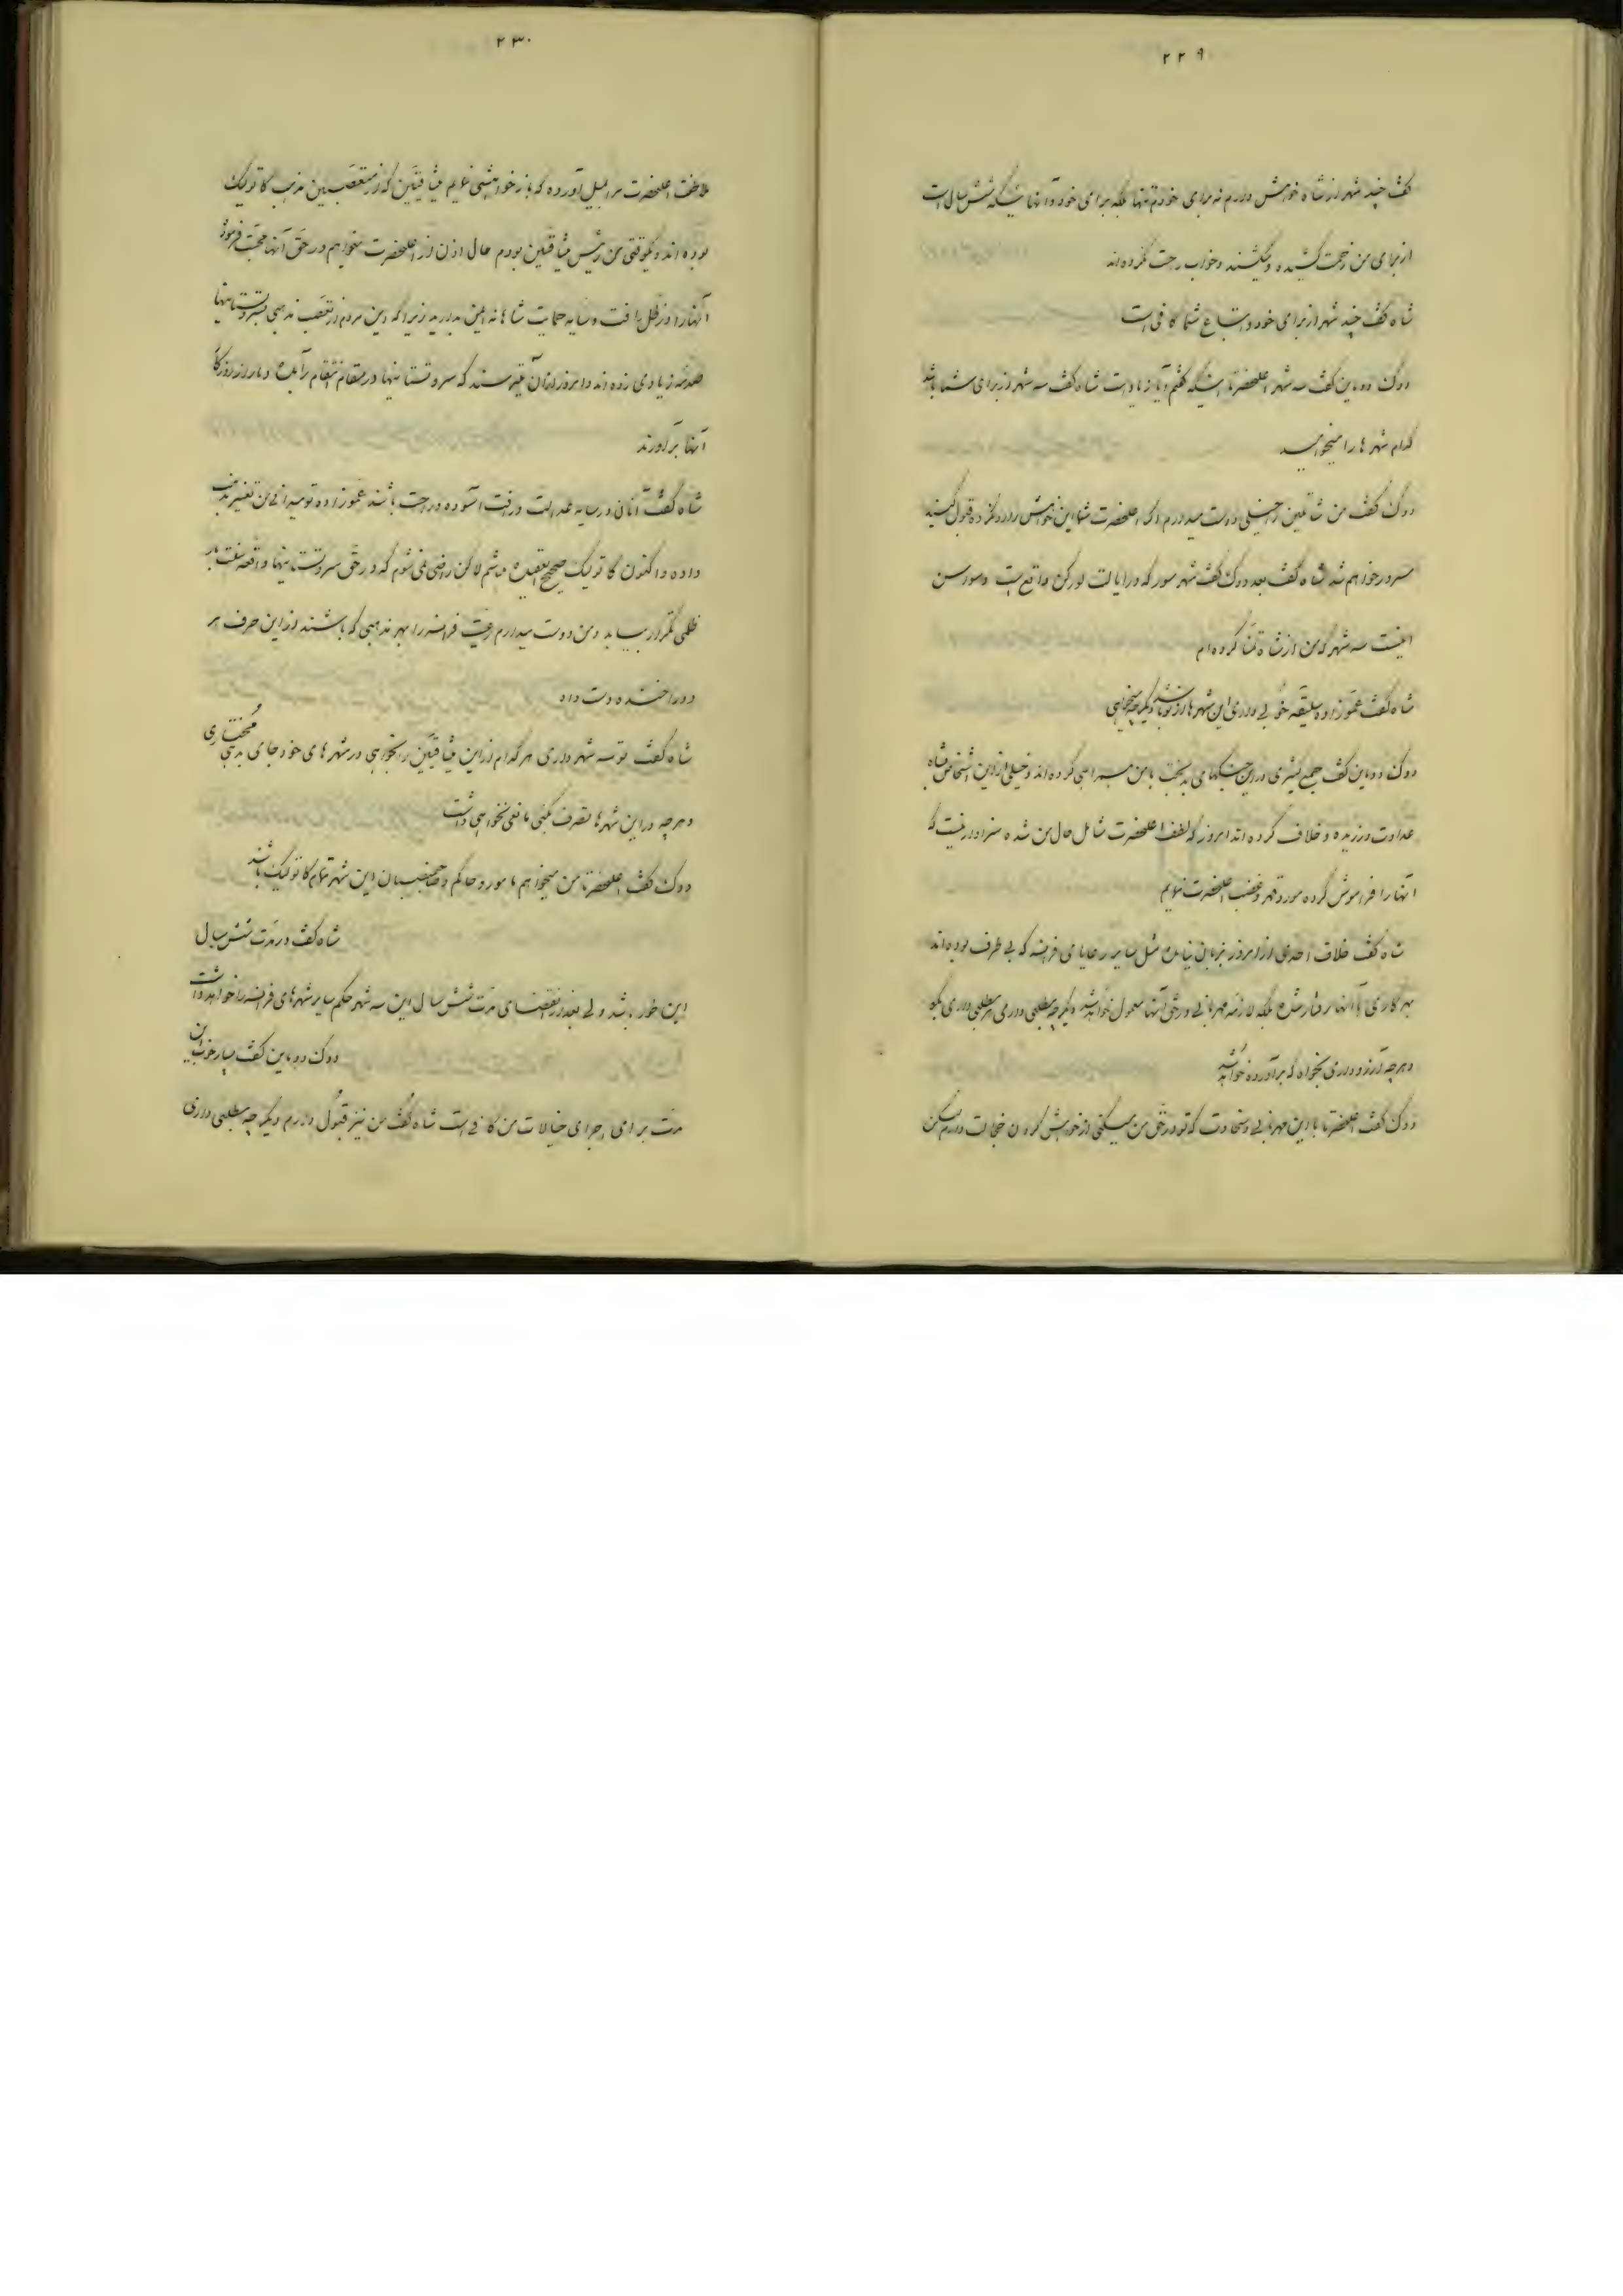 ۲۲۹
گفت چند شهر از شاه خواهش دارم نه برای خودم تنها بلکه برای خود و آنهائیکه شش سال است
از برای من زحمت کشیده و میکشند و خواب راحت نکرده‌اند
شاه گفت چند شهر از برای خود و اتباع شما کافی است
دوک دوماین گفت سه شهر اعلیحضرتا اینکه گفتم آیا زیاد است شاه گفت سه شهر از برای شما باشد
کدام شهرها را میخواهید
دوک گفت من شاتمین را خیلی دوست میدارم اگر اعلیحضرت شما این خواهش را رد نکرده قبول کنید
مسرور خواهم شد شاه گفت بعد دوک گفت شهر سور که در ایالت بورکن واقع است و سورسن
اینست سه شهر که من از شاه تمنا کرده‌ام
شاه گفت عموزاده سلیقه خوبی داری این شهرها از تو باشد دیگر چه میخواهی
دوک دوماین گفت جمع کثیری در این جنگهای بدبخت با من همراهی کرده‌اند و خیلی از این اشخاص با شاه
عداوت ورزیده و خلاف کرده‌اند امروز که لطف اعلیحضرت شامل حال من شده سزاوار نیست که
آنها را فراموش کرده مورد قهر و غضب اعلیحضرت نمایم
شاه گفت خلاف احدی از امروز بزبان نیامده مثل سایر رعایای فرانسه که بی طرف بوده‌اند
بهر کاری با آنها رفتار شده بلکه لازمه مهربانی در حق آنها معمول خواهد شد دیگر چه مطلبی داری هر مطلبی داری بگو
و هرچه آرزو داری بخواه که برآورده خواهد شد
دوک گفت اعلیحضرتا با این مهربانی و سخاوت که تو در حق من میکنی از خواهش کردن خجالت دارم لیکن
۲۳۰
ملاطفت اعلیحضرت مرا بمیل آورده که باز خواهشی نمایم میثاقیین که از متعصبین مذهب کاتولیک
بوده‌اند و یکوقتی من رئیس میثاقیین بودم حال اذن از اعلیحضرت میخواهم در حق آنها محبت فرموده
آنها را در ظل رافت و سایه حمایت شاهانه امین بدارید زیرا که این مردم از تعصب مذهبی بپروتستانیها
صدمه زیادی زده‌اند و امروز از آن میترسند که پروتستانیها در مقام انتقام برآمده دمار از روزگار
آنها برآورند
شاه گفت آنان در سایه عدالت و رافت آسوده و راحت باشند عموزاده تو میدانی من تغییر مذهب
داده و اکنون کاتولیک صحیح العقیده میباشم لاکن راضی نمی‌شوم که در حق پروتستانیها واقعه سنت بار
ظلمی تکرار بیاید و من دوست میدارم رعیت فرانسه را بهر مذهبی که باشند از این حرف هر
دو را خنده دست داد
شاه گفت تو سه شهر داری هر کدام از این میثاقیین را بخواهی در شهرهای خود جای بدهی مختاری
و هرچه در این شهرها تصرف بکنی مانعی نخواهی داشت
دوک گفت اعلیحضرتا من میخواهم مامور و حاکم و صاحبمنصبان این شهرها تمام کاتولیک باشند
شاه گفت در مدت شش سال
این طور باشد ولی بعد از انقضای مدت شش سال این سه شهر حکم سایر شهرهای فرانسه را خواهد داشت
دوک دوماین گفت بسیار خوب این
مدت برای اجرای خیالات من کافی است شاه گفت من نیز قبول دارم دیگر چه مطلبی داری